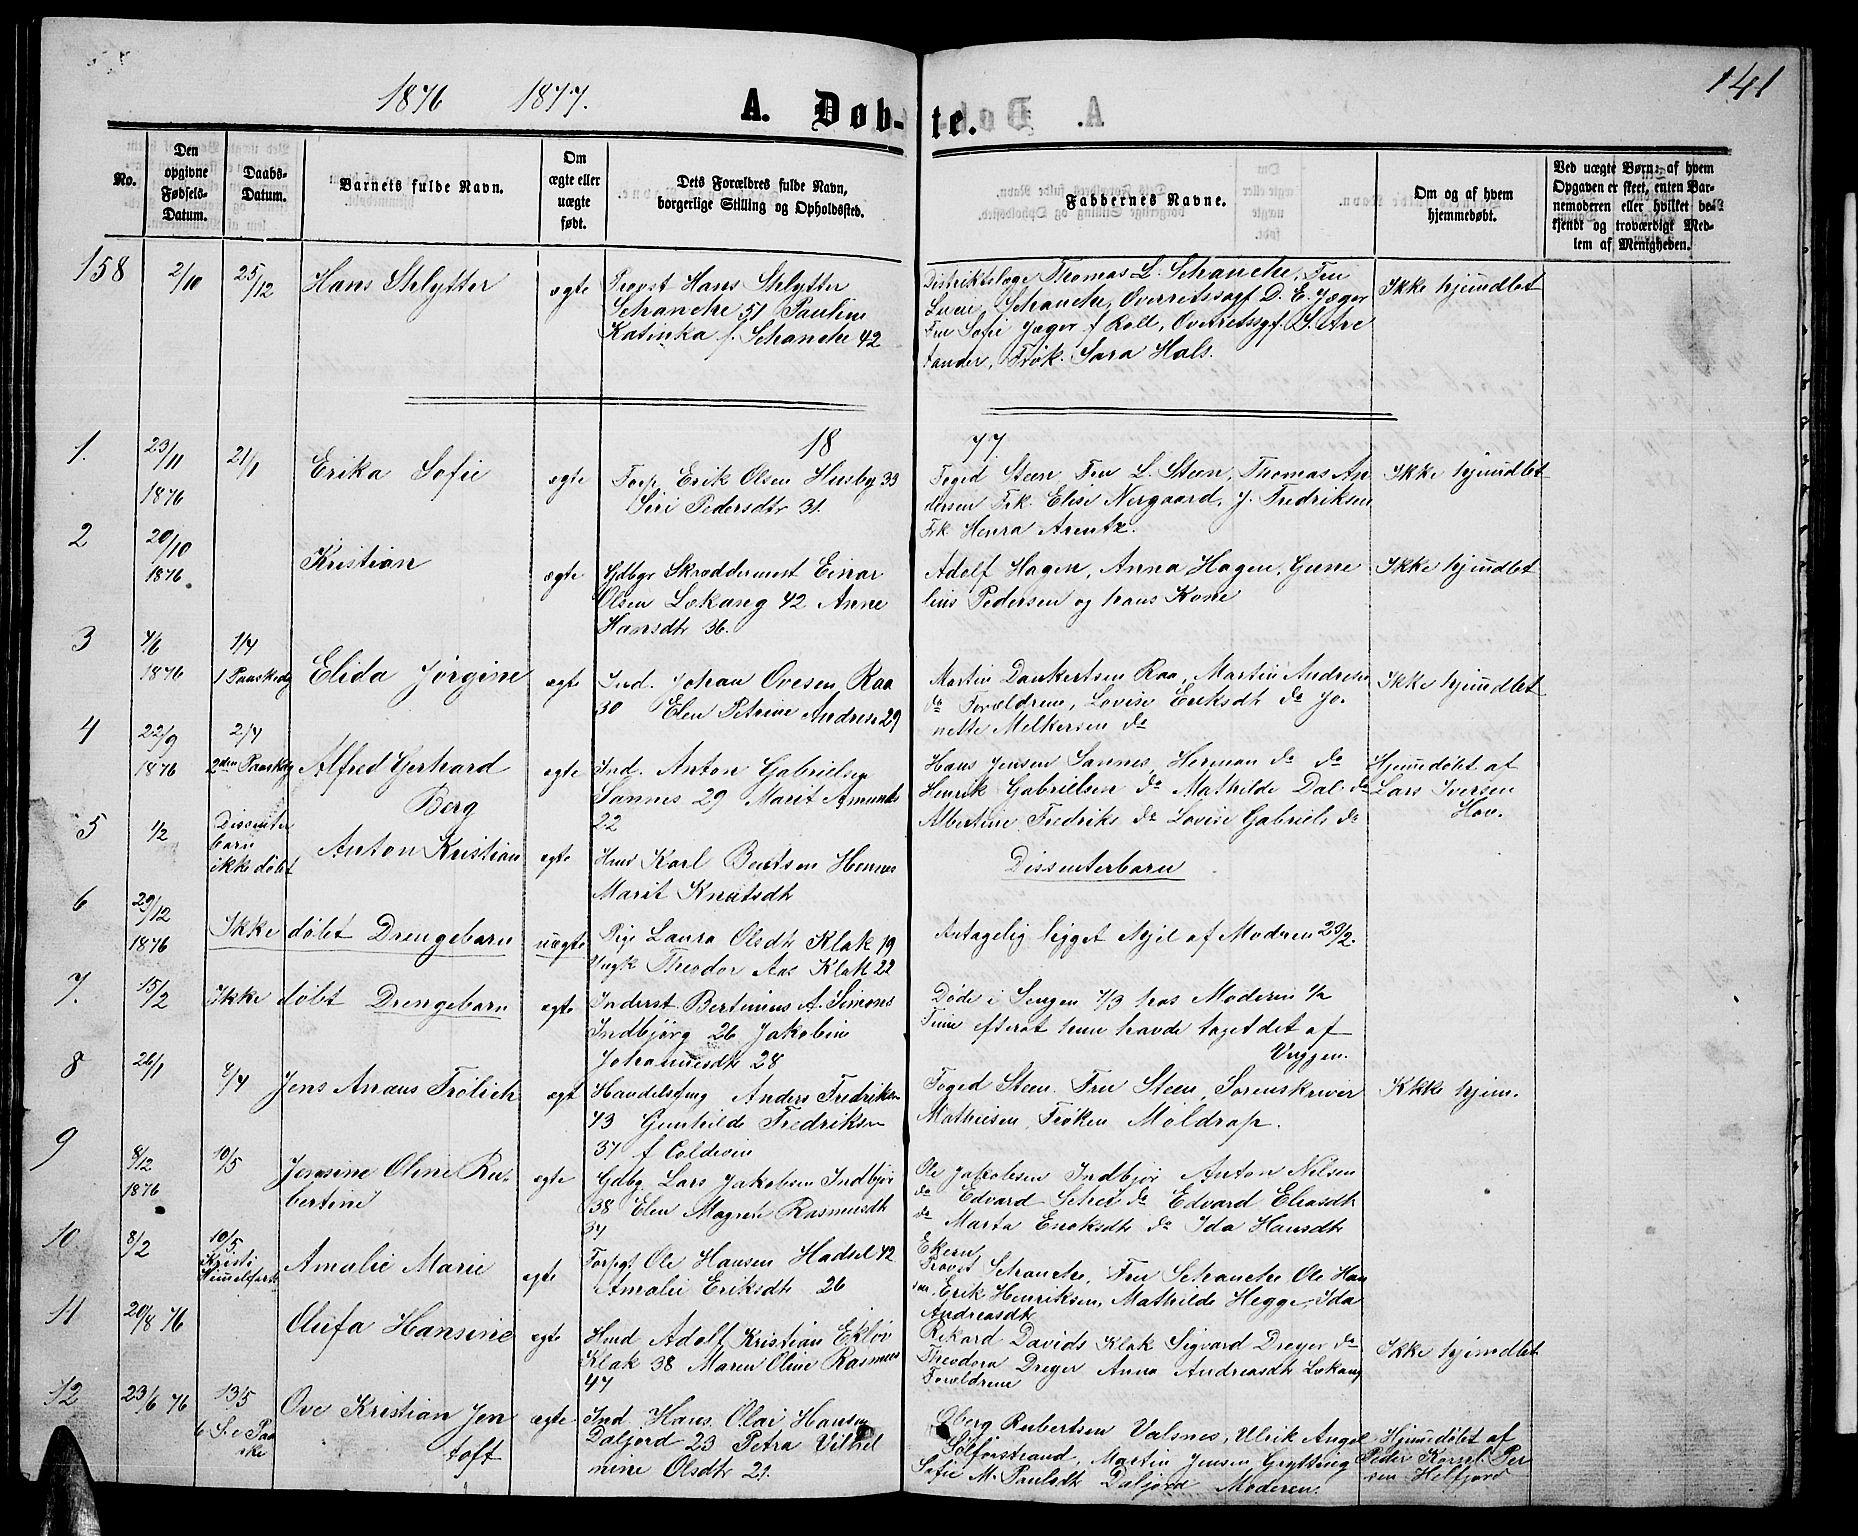 141
1876 1877.
A. Døb-te.
No.
Den opgivne Fødsels-Datum.
Daabs-Datum.
Barnets fulde Navn.
Om ægte eller uægte født.
Dets Forældres fulde Navn, borgerlige Stilling og Opholdssted.
Faddernes Navne.
Om og af hvem hjemmedøbt.
Ved uægte Børn: af hvem Opgaven er skeet, enten Barnemoderen eller hvilket bekjendt og troværdigt Medlem af Menigheden.
158 2/10 25/12 Hans Shlytter ægte Provst Hans Shlytter
Schanche 51 Pauline
Katinka f. Schanche 42
Distriktslæge Thomas L. Schanche, Fru
Schanche, Overretssagf D. E. Jæger
Fru Sofie Jæger f Roll, Overretssgf.
Frøk. Sara Hals.
Ikke hjemdbt
1877.
1. 23/11 1876 21/1 Erika Sofie ægte Forp. Erik Olsen Husby 33
Siri Pedersdtr 31.
Foged Steen Fru L. Steen, Thomas An
dersen Frk. Elise Nergaard, J. Fredriksen
Frk Henra Arentz.
Ikke hjemdbt
2 20/10 1876 Kristian ægte Gdbgr Skræddermest Einar
Olsen Lekang 42 Anne
Hansdtr 36.
Adolf Hagen, Anna Hagen, Gune
lius Pedersen og hans Kone
Ikke hjemdbt
3 4/6 1876 1/4 1 Paaskedg Elida Jørgine ægte Ind. Johan Ovesen Raa
30 Elen Petrine Andrese 29
Martin Dankertsen Raa, Martin Andresen
do Forældrene, Lovise Eriksdtr do Jo-
nette Melkersen do
Ikke hjemdbt
4 22/9 1876 2/4 2den Paaskdg Alfred Gerhard
Berg
ægte Ind. Anton Gabrielsen
Sannes 29 Marit Amunds
22
Hans Jensen Sannes, Herman do do
Henrik Gabrielsen do Mathilde Dal do
Albertine Fredriks do Lovise Gabriels do
Hjemmedøbt af
Lars Iversen
Hov.
5 1/2 Dissenter
barn
ikke døbt
Anton Kristian ægte Hmd Karl Bentsen Hennes
Marit Knutsdtr
Dissenterbarn
6 29/12 1876 Ikke døbt Drengebarn uægte Pige Laura Olsdtr Klak 19
Ungk Theodor Aas Klak 22
Antagelig ligget ihjel af Modren 23/2.
7. 15/2 Ikke døbt Drengebarn ægte Inderst Bertinius A. Simons
Indbjørg 26 Jakobine
Johannesdtr 28
Døde i Sengen 7/3 hos Moderen 1/2
Time efterat hun havde taget det af
Vuggen.
8 26/1 8/4 Jens Anæus Frölich ægt Handelsfmg Anders Fredriksen
43 Gunhilde Fredriksen
37 f Coldevin
Foged Steen Fru Steen, Sorenskriver
Mathiesen, Frøken Moldrap.
Ikke hjem.
9 8/12 1876 10/5 Jensine Oline Ru-
bertine
ægte Gdbg Lars Jakobsen Indbjør
38 Elen Magrete Rasmusdtr
37
Ole Jakobsen Indbjør Anton Nilsen
do Edvard do Edvard Eliasdtr
do Marta Enoksdtr do Ida Hansdtr
Ekern
10. 8/2 10/5. Kristi
Himmelfart
Amalie Marie ægte Forpgt Ole Hansen Hadsel 42
Amalie Eriksdtr 26
Provst Schanche, Fru Schanche Ole Han
sen, Erik Henriksen, Mathilde Hegge, Ida
Andreasdtr
11 20/8 76 Olufa Hansine ægte Hmd Adolf Kristian Ekløv
Klak 38 Maren Oline Rasmus
47
Rikard Davids Klak Sigvard Dreyer do
Theodora Dreyer Anna Andreasdtr Lekang
Forældrene
Ikke hjemdbt
12 23/6 76 13/5 6 S. e Paa
ske
Ove Kristian Jen
toft
ægte Ind Hans Olai Hansen
Daljord 23 Petra Vilhel
mine Olsdtr 21.
Oberg Rubertsen Valsnes, Ulrik Angel
Martin Jensen Grytting
Sofie M. Paulsdtr Daljord Moderen.
Hjemmedøbt af
Peder Kornl. Per
sen